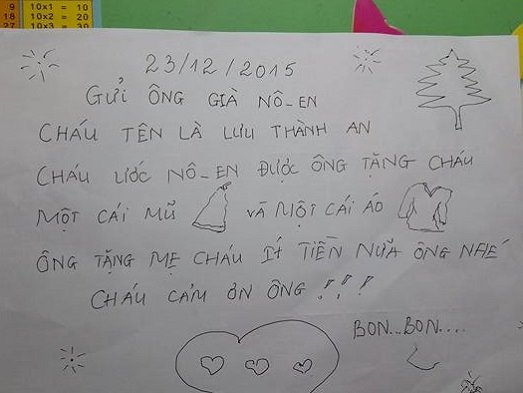 9 10x1 = 10
18 10x2 = 20
27 10x3 = 30
23/12/2015
GỬI ÔNG GIÀ NÔ-EN
CHÁU TÊN LÀ LƯU THÀNH AN
CHÁU ƯỚC NÔ-EN ĐƯỢC ÔNG TẶNG CHÁU
MỘT CÁI MŨ VÃ MỘT CÁI ÁO
ÔNG TẶNG MẸ CHÁU ÍT TIỀN NỮA ÔNG NHÉ
CHÁU CẢM ƠN ÔNG !!!
BON...BON....